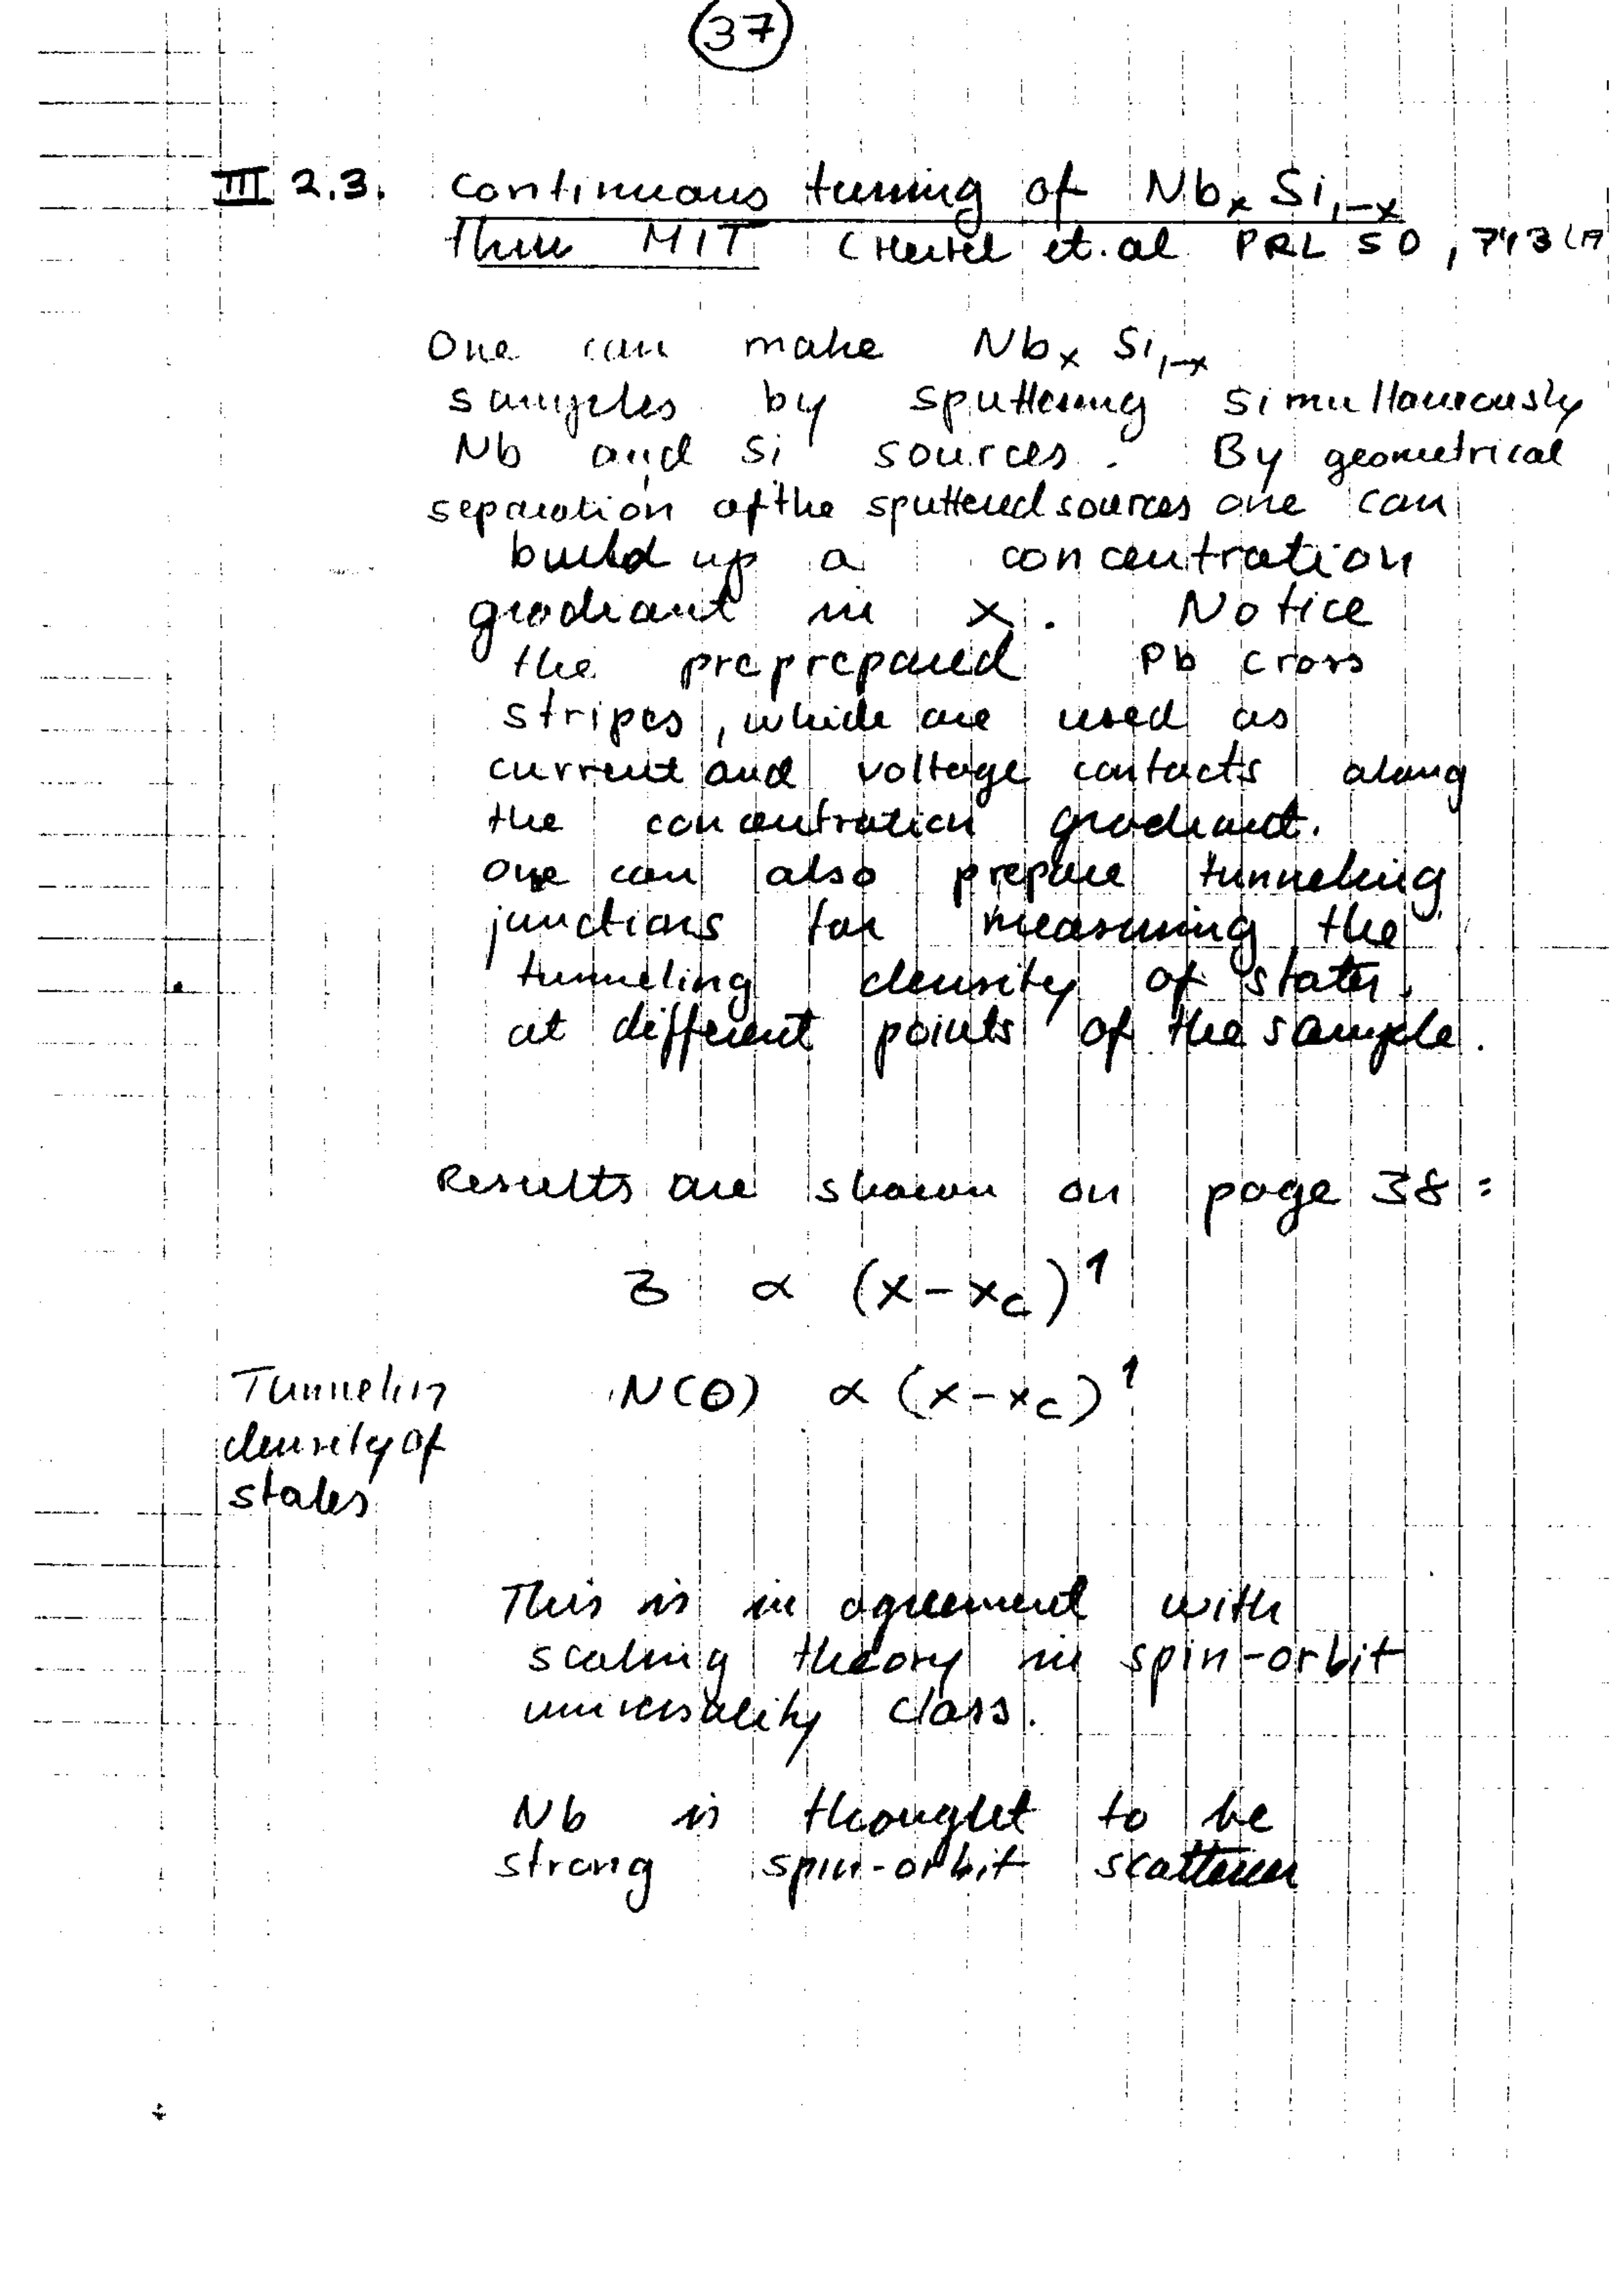 37
III 2.3. Continuous tuning of Nbₓ Si₁₋ₓ
thru MIT (Hertel et.al PRL 50, 743 (1
One can make Nbₓ Si₁₋ₓ
samples by sputtering simultaneously
Nb and Si sources. By geometrical
separation of the sputtered sources one can
build up a concentration
gradiant in x. Notice
the preprepared Pb cross
stripes, which are used as
current and voltage contacts along
the concentration gradiant.
One can also prepare tunneling
junctions for measuring the
tunneling density of states.
at different points of the sample.
Results are shown on page 38:
σ ∝ (x-x_c)^1
Tunnelin N(0) ∝ (x-x_c)^1
density of
states
This is in agreement with
scaling theory in spin-orbit
universality class.
Nb is thought to be
strong spin-orbit scatterer